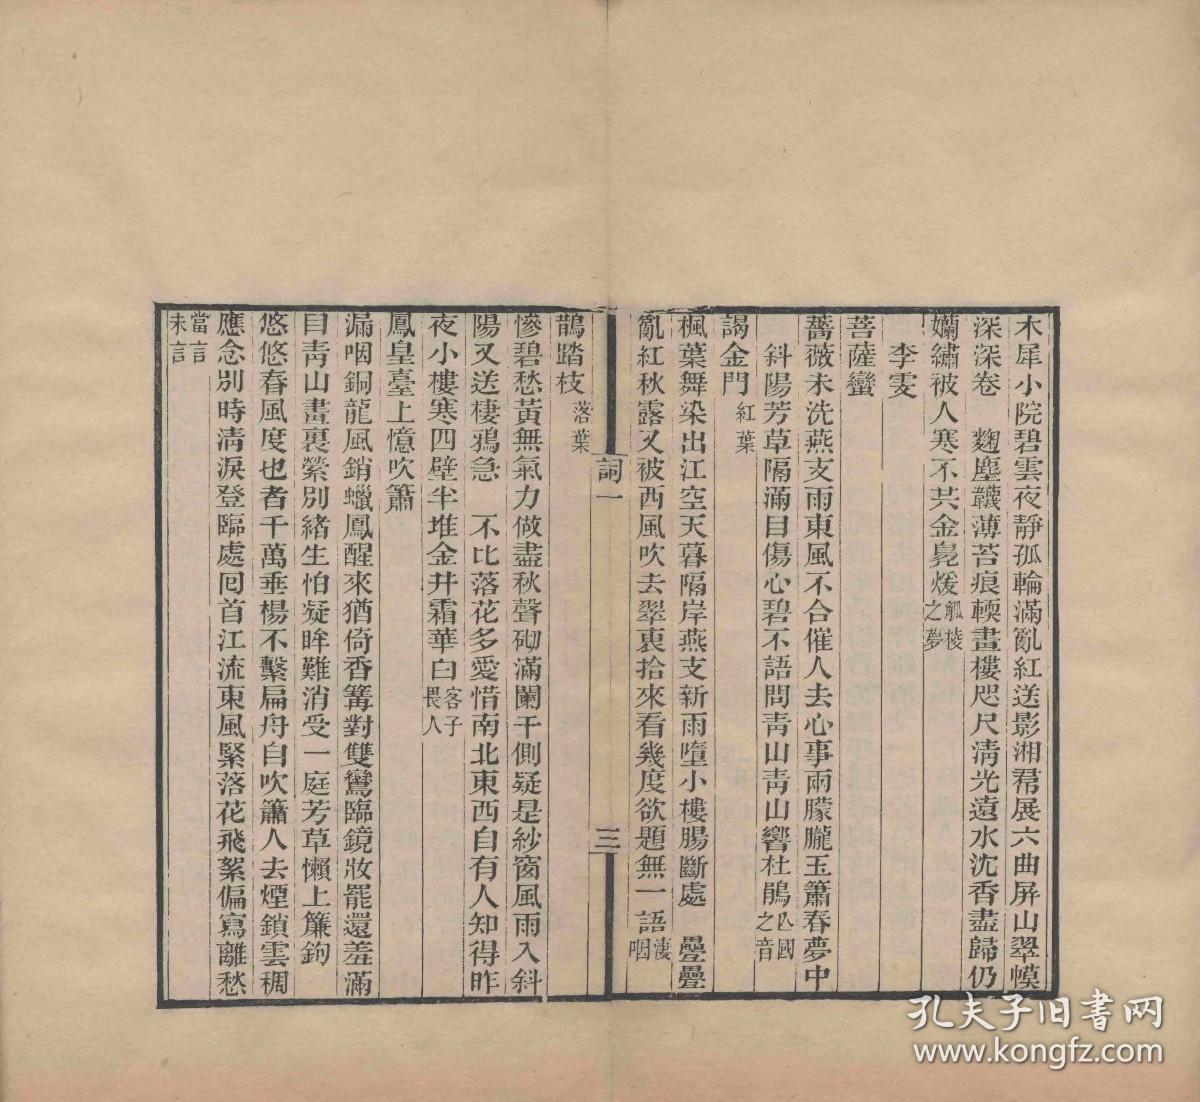 木犀小院碧雲夜靜孤輪滿亂紅送影湘帬展六曲屏山翠幙
深深卷　麴塵韈薄苔痕輭畫樓咫尺淸光遠水沈香盡歸仍
嬾繡被人寒不共金鳧煖觚棱之夢
李雯
菩薩蠻
薔薇未洗燕支雨東風不合催人去心事兩朦朧玉簫春夢中
斜陽芳草隔滿目傷心碧不語問靑山靑山響杜鵑亾國之音
謁金門紅葉
楓葉舞染出江空天暮隔岸燕支新雨墮小樓腸斷處　疊疊
亂紅秋露又被西風吹去翠裏拾來看幾度欲題無一語淒咽
詞一
三
鵲踏枝落葉
慘碧愁黃無氣力做盡秋聲砌滿闌干側疑是紗窗風雨入斜
陽又送棲鴉急　不比落花多愛惜南北東西自有人知得昨
夜小樓寒四壁半堆金井霜華白客子畏人
鳳皇臺上憶吹簫
漏咽銅龍風銷蠟鳳醒來猶倚香篝對雙鸞臨鏡妝罷還羞滿
目靑山畫裏縈別緖生怕凝眸難消受一庭芳草懶上簾鉤
悠悠春風度也者千萬垂楊不繫扁舟自吹簫人去煙鎖雲稠
應念別時淸淚登臨處回首江流東風緊落花飛絮偏寫離愁
當言未言
孔夫子旧书网
www.kongfz.com